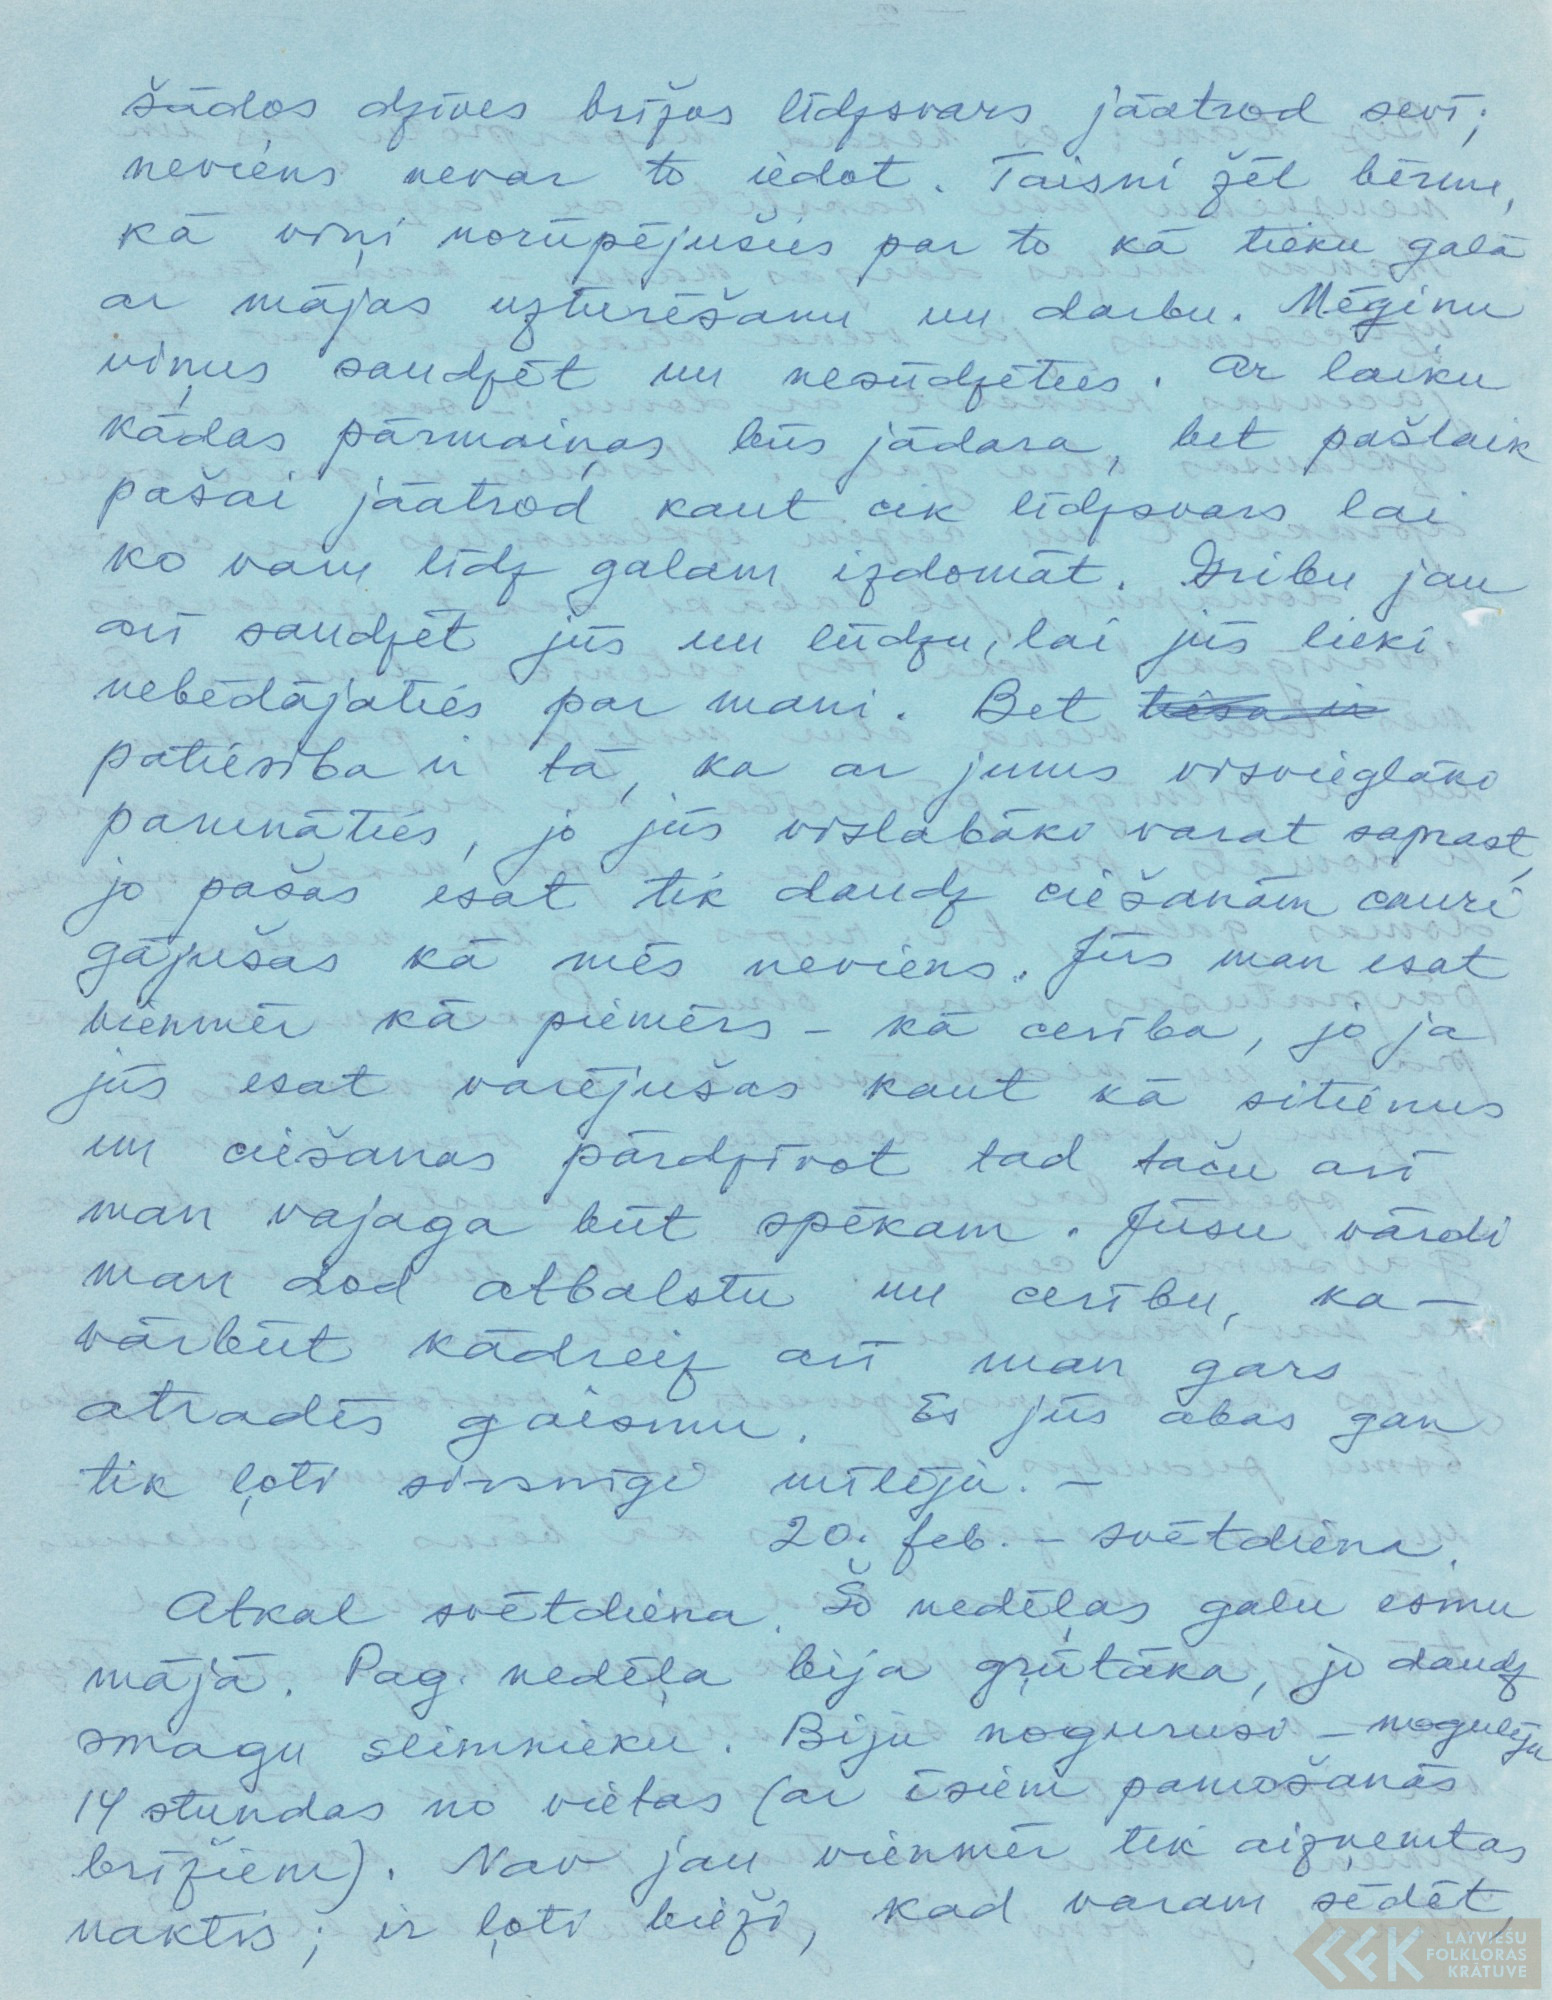 šādos dzīves brīžos līdzsvars jāatrod sevī;
neviens nevar to iedot. Taisni žēl bērnu,
kā viņi norūpējušies par to kā tieku galā
ar mājas uzturēšanu un darbu. Mēģinu
viņus saudzēt un nesūdzēties. Ar laiku
kādas pārmaiņas būs jādara, bet pašlaik
pašai jāatrod kaut cik līdzsvars lai
ko varu līdz galam izdomāt. Gribu jau
arī saudzēt jūs un lūdzu, lai jūs lieki
nebēdājaties par mani. Bet tiesa ir
patiesība ir tā, ka ar jums visvieglāki
parunāties, jo jūs vislabāki varat saprast,
jo pašas esat tik daudz ciešanām cauri
gājušas kā mēs neviens. Jūs man esat
vienmēr kā piemērs – kā cerība, jo ja
jūs esat varējušas kaut kā sitienus
un ciešanas pārdzīvot tad taču arī
man vajaga būt spēkam. Jūsu vārdi
man dod atbalstu un cerību, ka –
vārbūt kādreiz arī man gars
atradīs gaismu. Es jūs abas gan
tik ļoti sirsnīgi mīlēju. –
20. feb. – svētdiena.
Atkal svētdiena. Šo nedēļas galu esmu
mājā. Pag. nedēļa bija grūtāka, jo daudz
smagu slimnieku. Biju nogurusi – nogulēju
14 stundas no vietas (ar īsiem pamošanās
brīžiem). Nav jau vienmēr tik aizņemtas
naktis; ir ļoti bieži, kad varam sēdēt,
LATVIEŠU
FOLKLORAS
KRĀTUVE